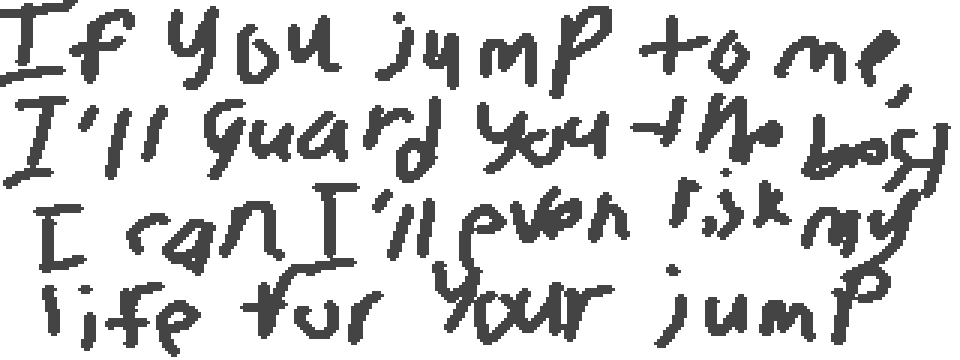 If you jump to me,
I'll guard you the best
I can I'll even risk my
life for your jump